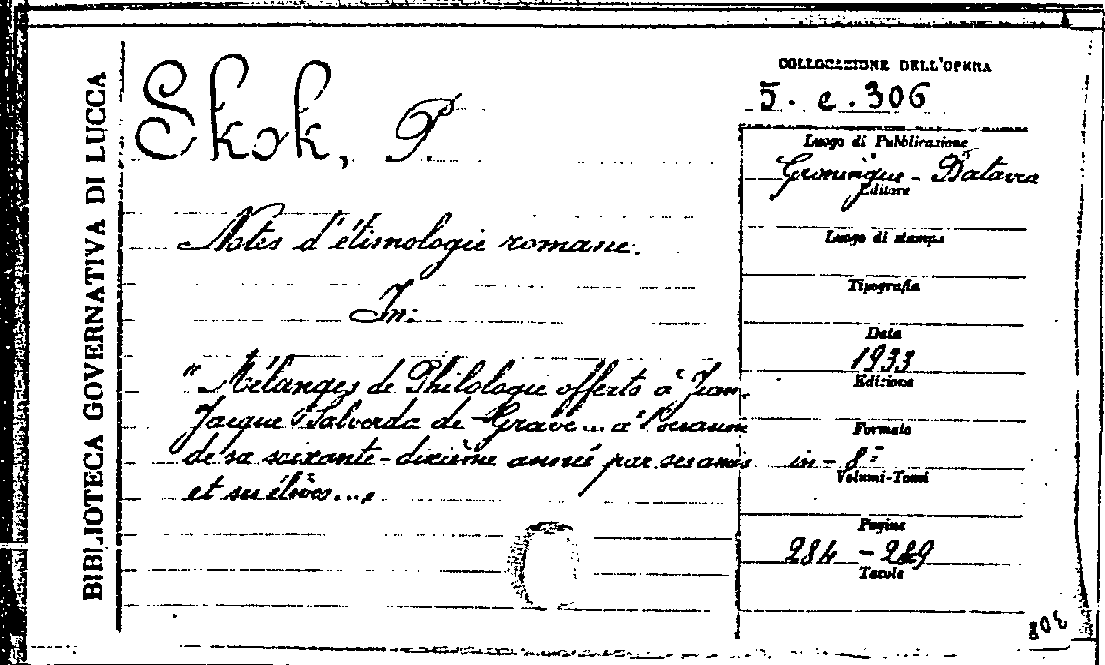 BIBLIOTECA GOVERNATIVA DI LUCCA
Skok, P.
Notes d'étimologie romane.
In:
"Mélanges de Philologie offerts à Jean-
Jacque Salverda de Grave... à l'occasion
de sa soixante-dixième année par ses amis
et ses élèves...,
COLLOCAZIONE DELL'OPERA
5. e. 306
Luogo di Pubblicazione
Groningue - Batavia
Editore
Luogo di stampa
Tipografia
Data
1933
Edizione
Formato
in-8°
Volumi-Tomi
Pagine
284 - 289
Tavole
308